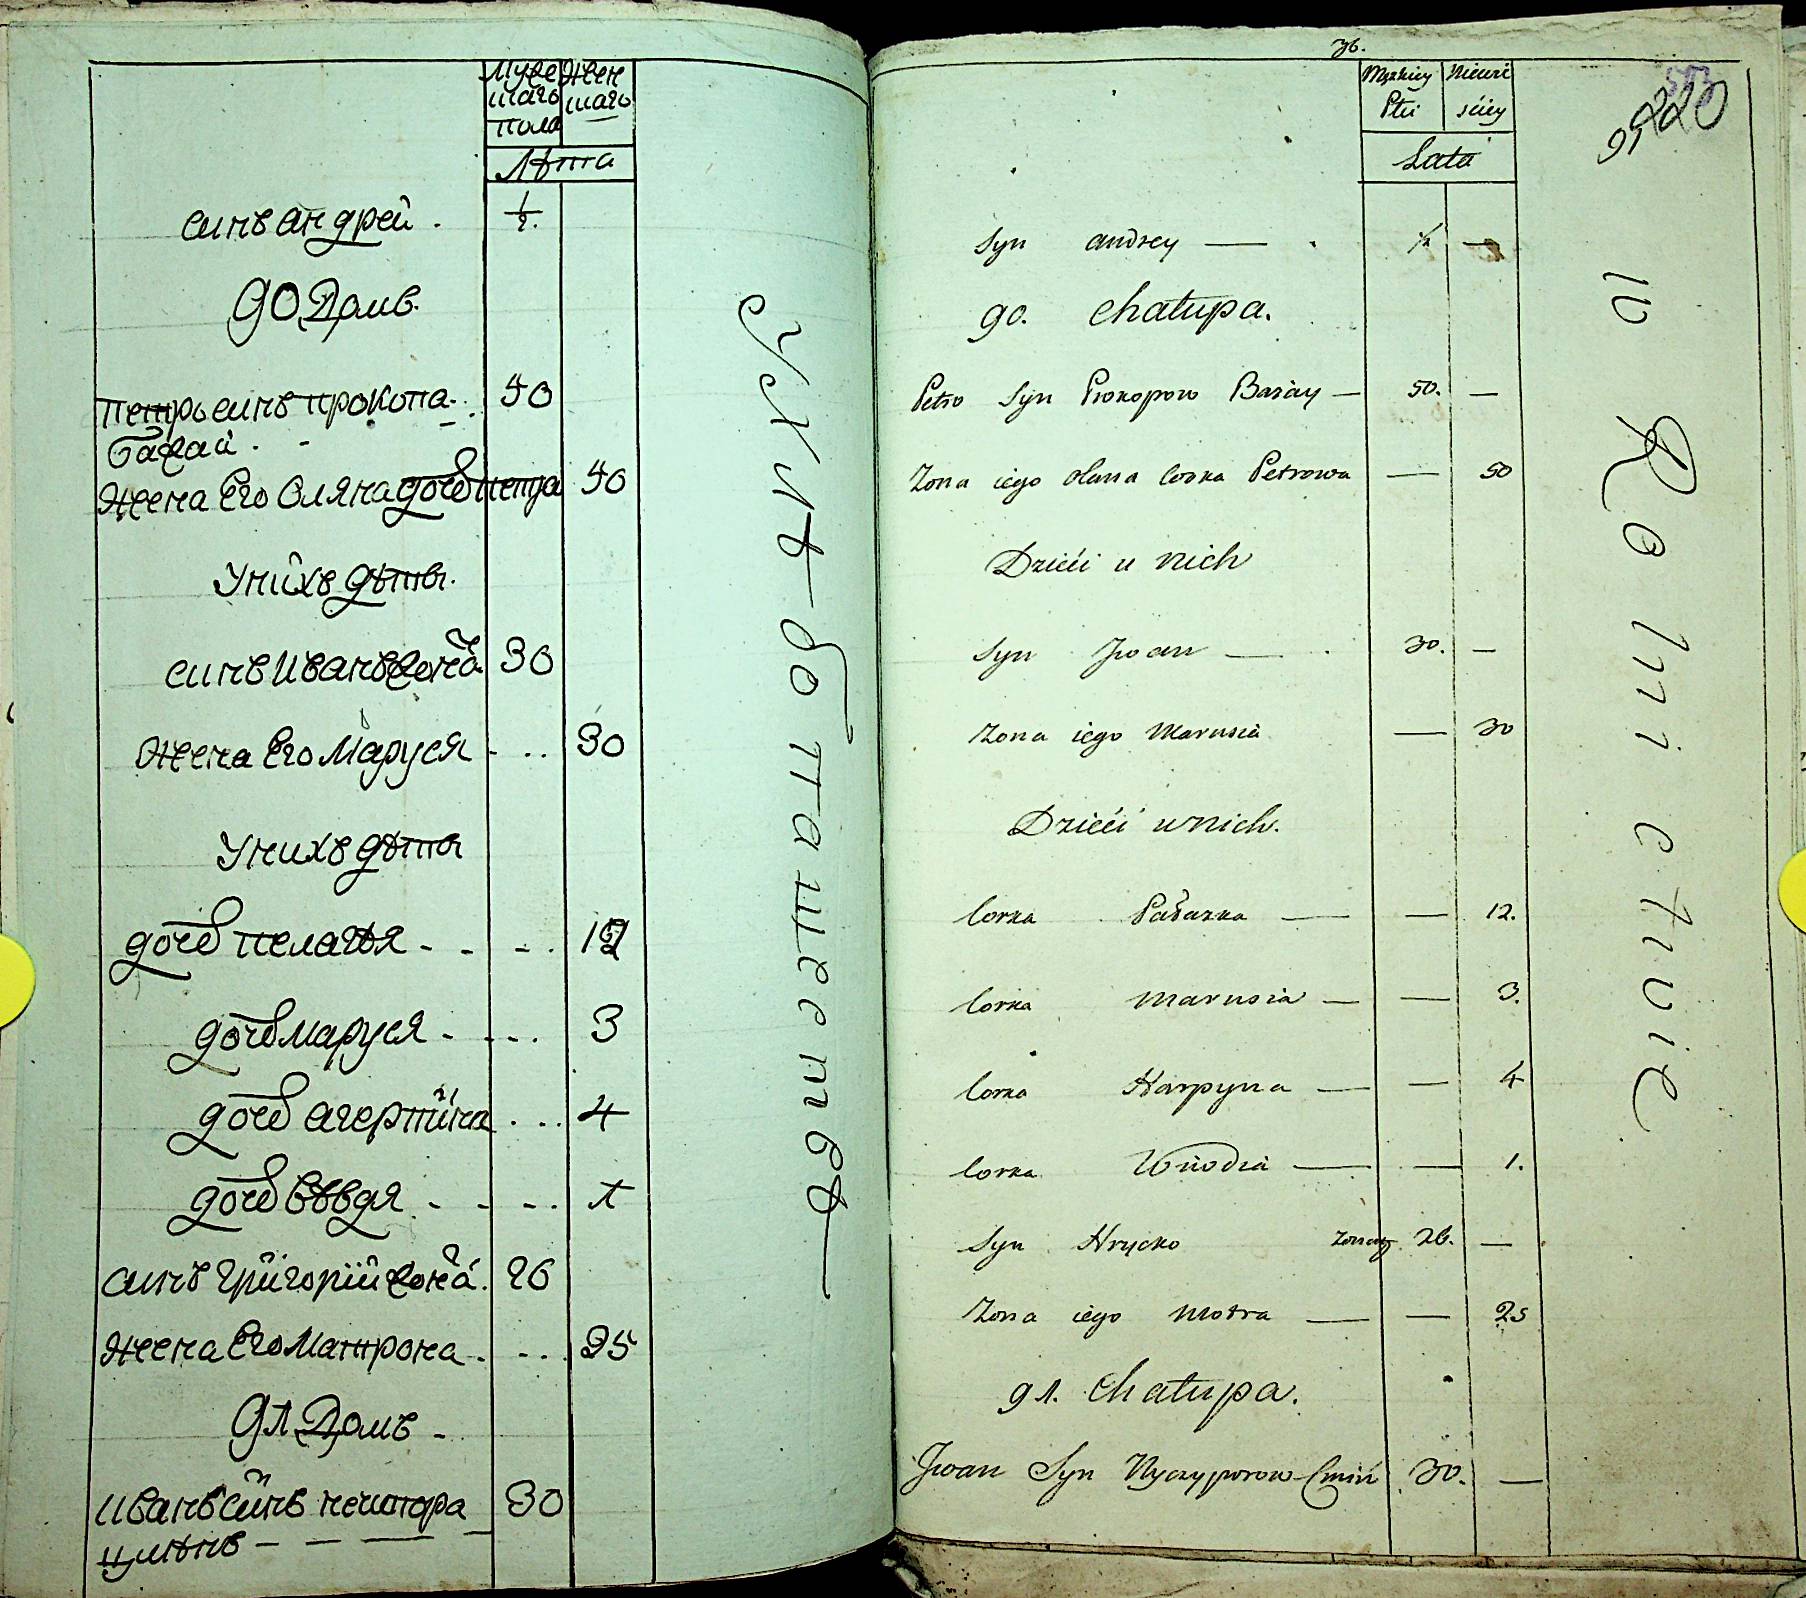 Муже Жен
шаго шаго
пола
Лѣта
синъ андрей . 1/2.
90 Домъ.
петръ синъ прокопа . . 50
базай . -
жена Его Оляна дочь петра 50
Унихъ дѣты.
синъ Иванъ жона 30
жена Его Маруся - . . 30
Унихъ дѣты
дочь пелагѣя - - - . 12
дочь маруся - - . . 3
дочь агерпина . . . 4
дочь Ѣввдя . - - . . 1
синъ григорій жона . 26
жена Его Матрона . - . . 25
91 Домъ -
иванъ синъ нечипора 30
цмѣнъ - - —
Ухилѣ боташеспвѣ
76.
Męzkiey Niewi
Płci sciey
Lata
220
91
syn andrey — . 1/2 —
90. Chałupa.
Petro Syn Prokopow Bazay — 50. —
Zona iego Olana Corka Petrowa — 50
Dzieći u nich
Syn Jwan — . 30. —
Zona iego Marusia — 30
Dzieći unich.
Corka Pałazka — — 12.
Corka Marusia — — 3.
Corka Harpyna — — 4
Corka — — 1.
Syn Hrycko zonaty 26. —
Zona iego Motra — — 25
91. Chałupa.
Jwan Syn Nyczyporow Cmiń 30. —
w Rolnictwie